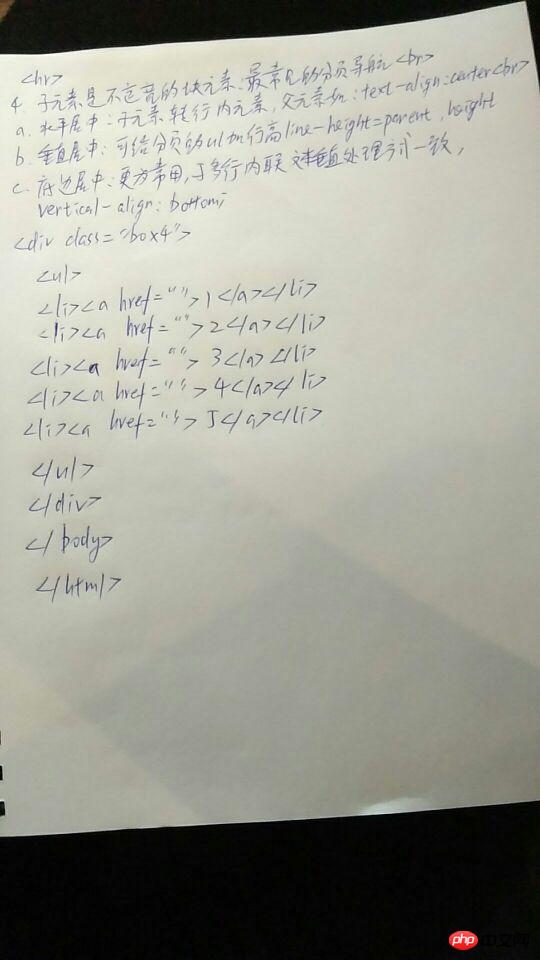 <hr>
4. 子元素是不定宽的块元素:最常见的分页导航<br>
a. 水平居中:子元素转行内元素,父元素加:text-align:center<br>
b. 垂直居中:可给分页的ul加行高line-height=parent.height
c. 底边居中:更为常用,与多行内联文本垂直处理方式一致,
vertical-align:bottom;
<div class="box4">
<ul>
<li><a href="">1</a></li>
<li><a href="">2</a></li>
<li><a href="">3</a></li>
<li><a href="">4</a></li>
<li><a href="">5</a></li>
</ul>
</div>
</body>
</html>
php 中文网